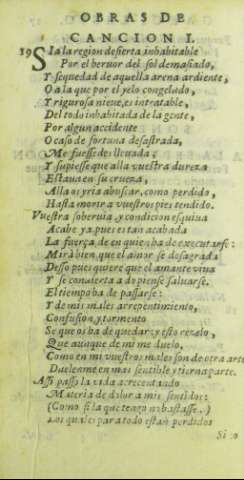 OBRAS DE
CANCION I.
19 SIa la region desierta inhabitable
Por el heruor del sol demasiado,
Y sequedad de aquella arena ardiente,
O a la que por el yelo congelado,
Y rigurosa nieue, es intratable,
Del todo inhabitada de la gente,
Por algun accidente
O caso de fortuna desastrada,
Me fuessedes lleuada;
Y supiesse que alla vuestra dureza
Estaua en su crueza,
Alla os yria a buscar, como perdido,
Hasta morir a vuestros pies tendido.
Vuestra soberuia, y condicion esquiua
Acabe ya, pues es tan acabada
La fuerça de en quien ha de executarse:
Mirà bien que el amor se desagrada
Desso pues quiere que el amante viua
Y se conuierta a do piense saluarse.
El tiempo ha de passarse:
Y de mis males arrepentimiento,
Confusion, y tormento
Se que os ha de quedar: y esto recelo,
Que aunque de mi me duelo,
Como en mi vuestros males son de otra arte
Duelenme en mas sentible y tierna parte.
Assi passo la vida acrecentando
Materia de dolor a mis sentidos:
(Como si la que tengo no bastasse,)
Los quales para todo estan perdidos
Si no